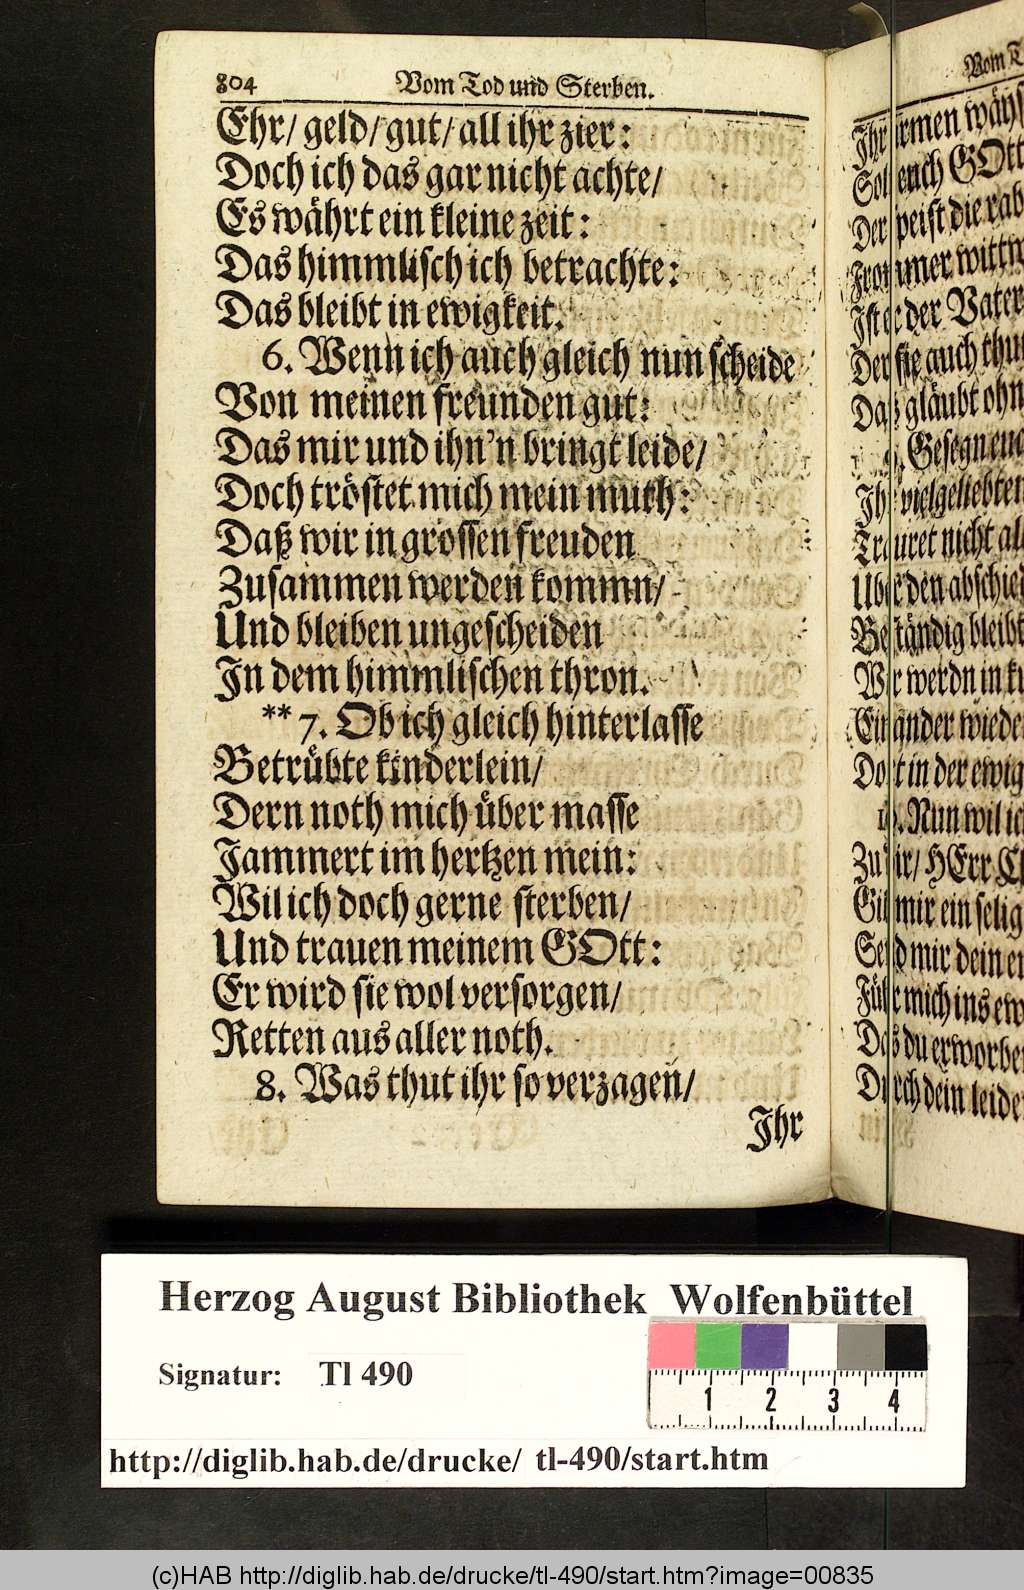 804 Vom Tod und Sterben.
Ehr/ geld/ gut/ all ihr zier:
Doch ich das gar nicht achte/
Es währt ein kleine zeit:
Das himmlisch ich betrachte:
Das bleibt in ewigkeit.
6. Wenn ich auch gleich nun scheide
Von meinen freunden gut:
Das mir und ihn'n bringt leide/
Doch tröstet mich mein muth:
Daß wir in grossen freuden
Zusammen werden kommn/
Und bleiben ungescheiden
In dem himmlischen thron.
** 7. Ob ich gleich hinterlasse
Betrübte kinderlein/
Dern noth mich über masse
Jammert im hertzen mein:
Wil ich doch gerne sterben/
Und trauen meinem GOtt:
Er wird sie wol versorgen/
Retten aus aller noth.
8. Was thut ihr so verzagen/
Ihr
Vom
Ihr armen
euch GOtt
Der speist die
Frommer
Ist er der Vater
Der sie auch
Daß gläubt
Gesegn
Ihr vielgeliebten
Trauret nicht
Uber den
Beständig bleibt
Wir werdn in
Einander
Dort in der
Nun wil
Zu dir/ HErr
Gib mir ein
Send mir dein
Führ mich ins
Das du
Durch dein
Herzog August Bibliothek Wolfenbüttel
Signatur: Tl 490
1 2 3 4
http://diglib.hab.de/drucke/ tl-490/start.htm
(c)HAB http://diglib.hab.de/drucke/tl-490/start.htm?image=00835